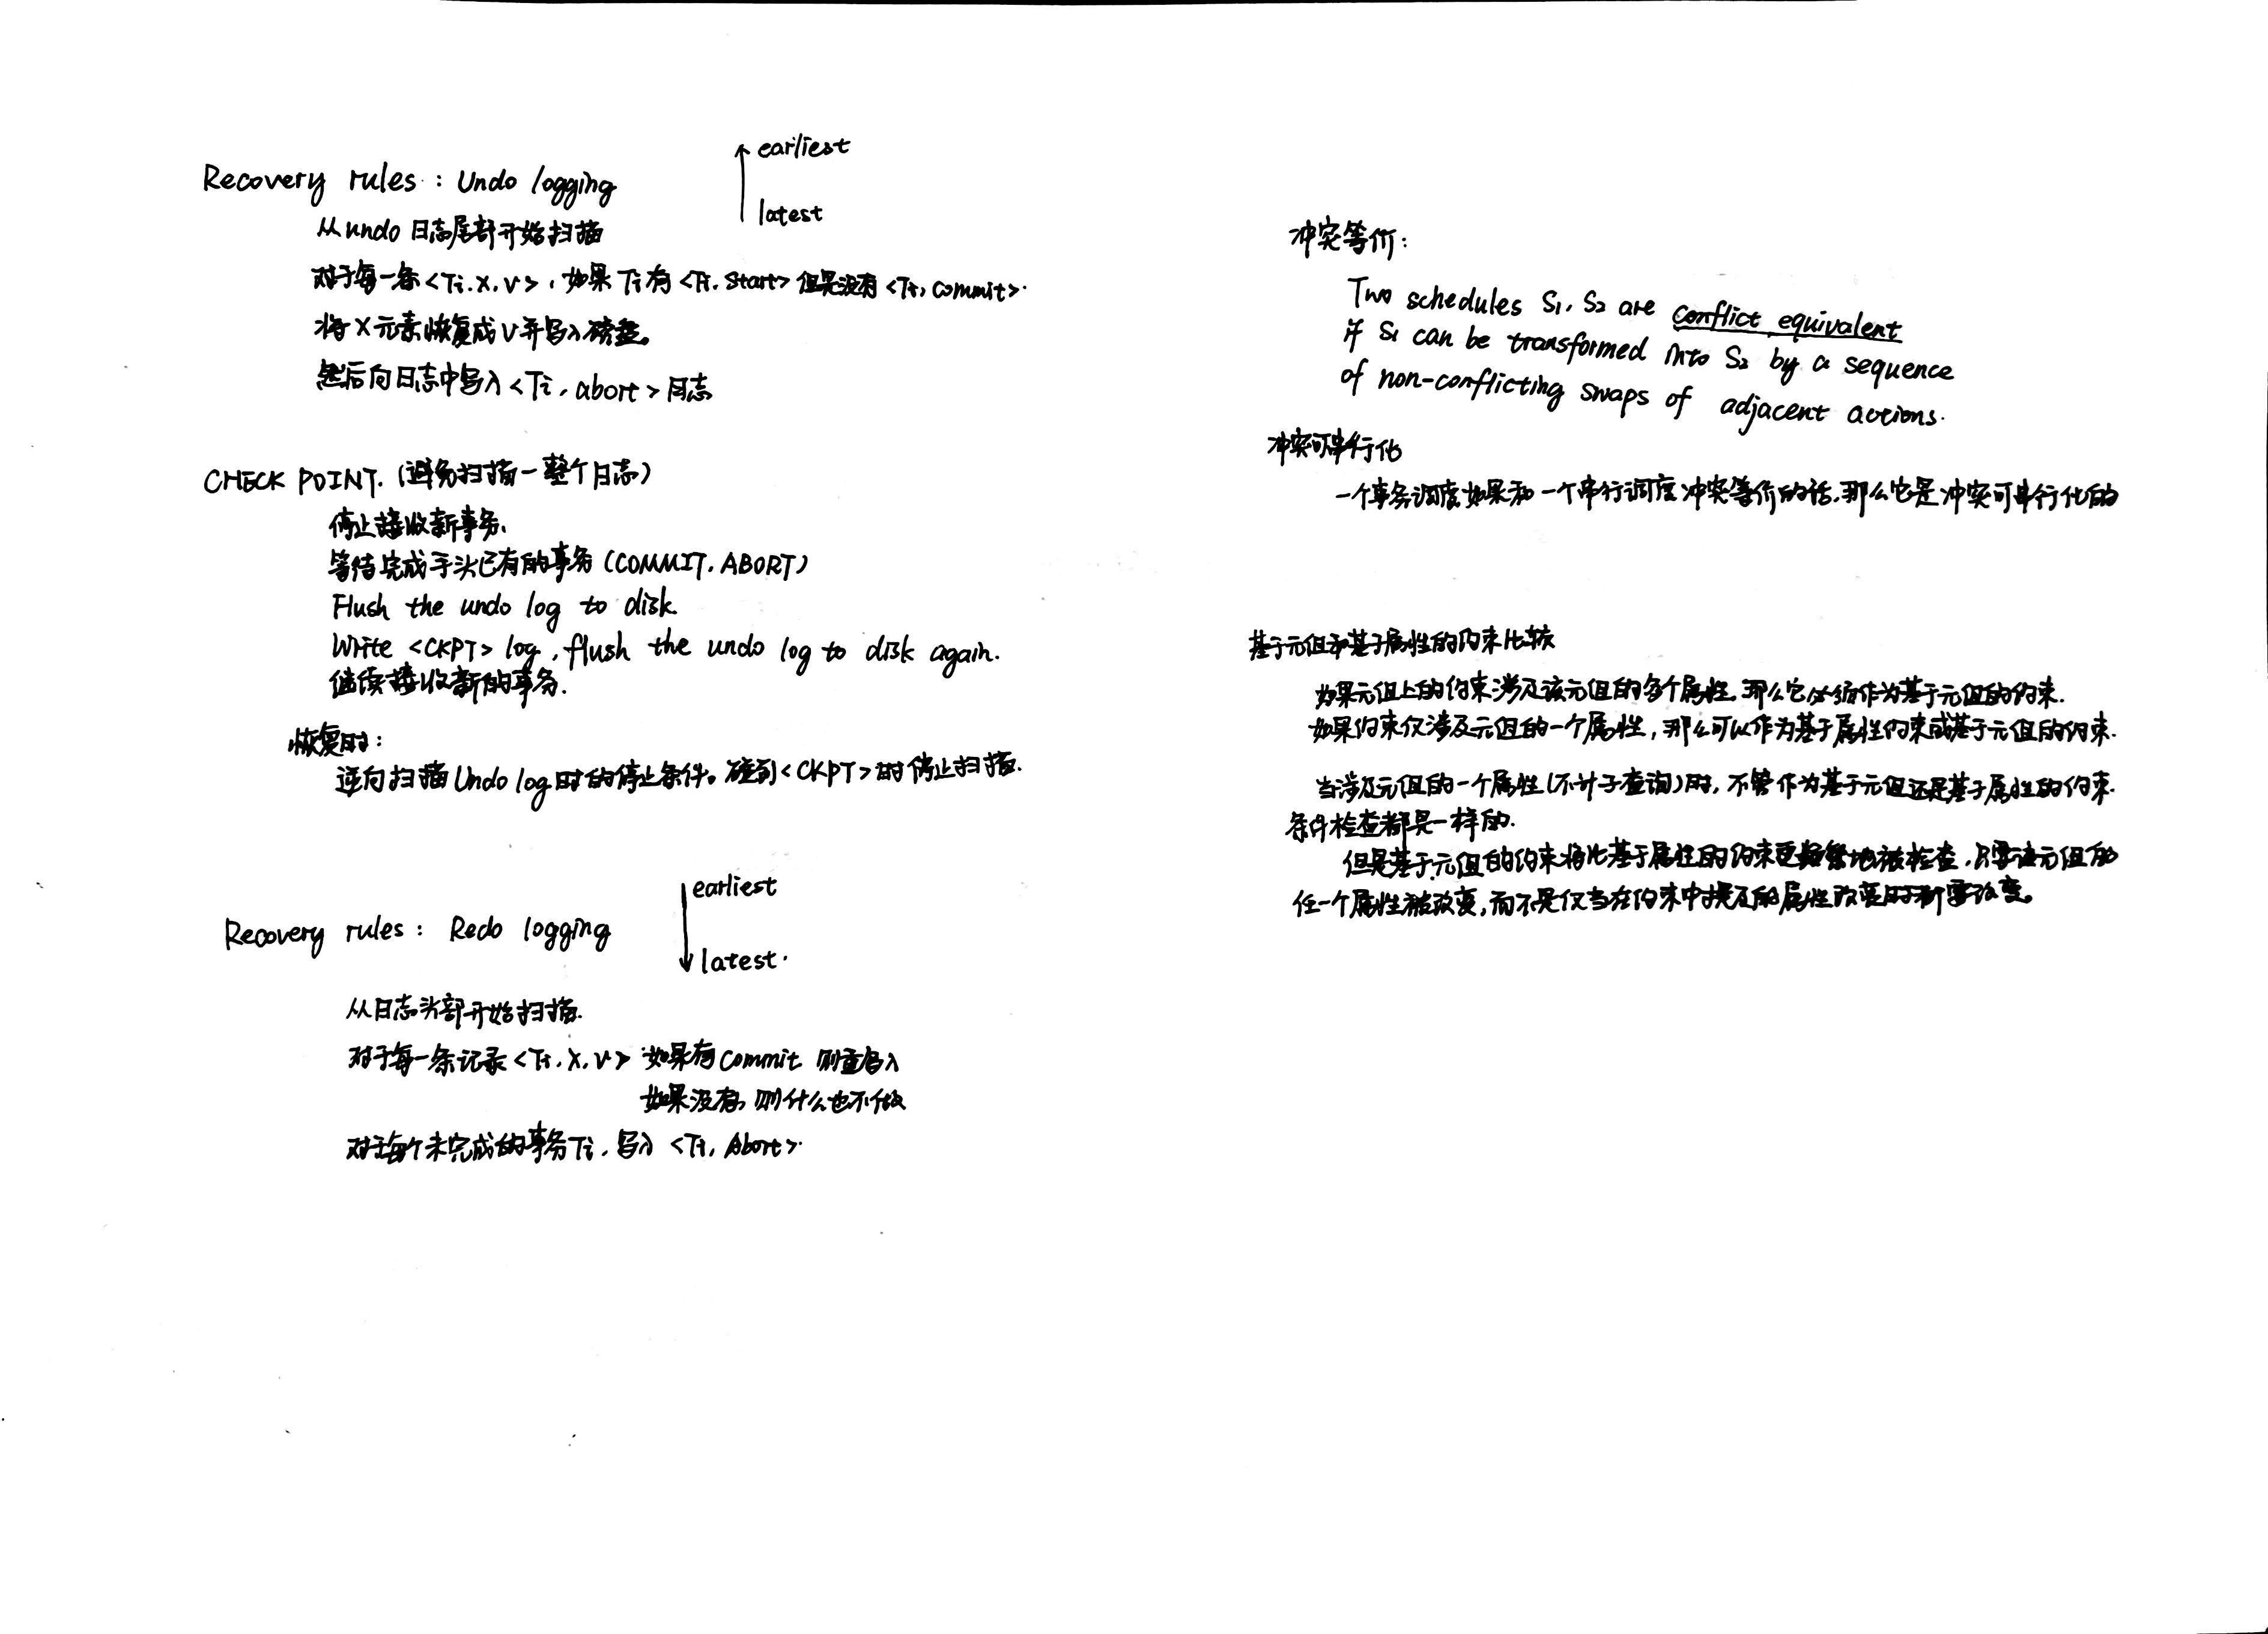 Recovery rules: Undo logging
earliest
latest
从undo日志尾部开始扫描
对于每一条<Ti,X,V>,如果Ti有<Ti,Start>但是没有<Ti,Commit>.
将X元素恢复成V并写入磁盘。
然后向日志中写入<Ti,abort>日志
CHECK POINT.(避免扫描一整个日志)
停止接收新事务、
等待完成手头已有的事务(COMMIT,ABORT)
Flush the undo log to disk.
Write <CKPT> log, flush the undo log to disk again.
继续接收新的事务.
恢复时:
逆向扫描Undo log时的停止条件。碰到<CKPT>时停止扫描.
Recovery rules: Redo logging
earliest
latest.
从日志头部开始扫描.
对于每一条记录<Ti,X,V> 如果有commit 则重写入
如果没有 则什么也不做
对于每个未完成的事务Ti,写入<Ti,Abort>.
冲突等价:
Two schedules S1, S2 are conflict equivalent
if S1 can be transformed into S2 by a sequence
of non-conflicting swaps of adjacent actions.
冲突可串行化
一个事务调度如果和一个串行调度冲突等价的话,那么它是冲突可串行化的
基于元组和基于属性的约束比较
如果元组上的约束涉及该元组的多个属性,那么它必须作为基于元组的约束.
如果约束仅涉及元组的一个属性,那么可以作为基于属性约束或基于元组的约束.
当涉及元组的一个属性(不计子查询)时,不管作为基于元组还是基于属性的约束.
条件检查都是一样的.
但是基于元组的约束将比基于属性的约束更频繁地被检查,只要该元组的
任一个属性被改变,而不是仅当在约束中提及的属性改变时才需改变。